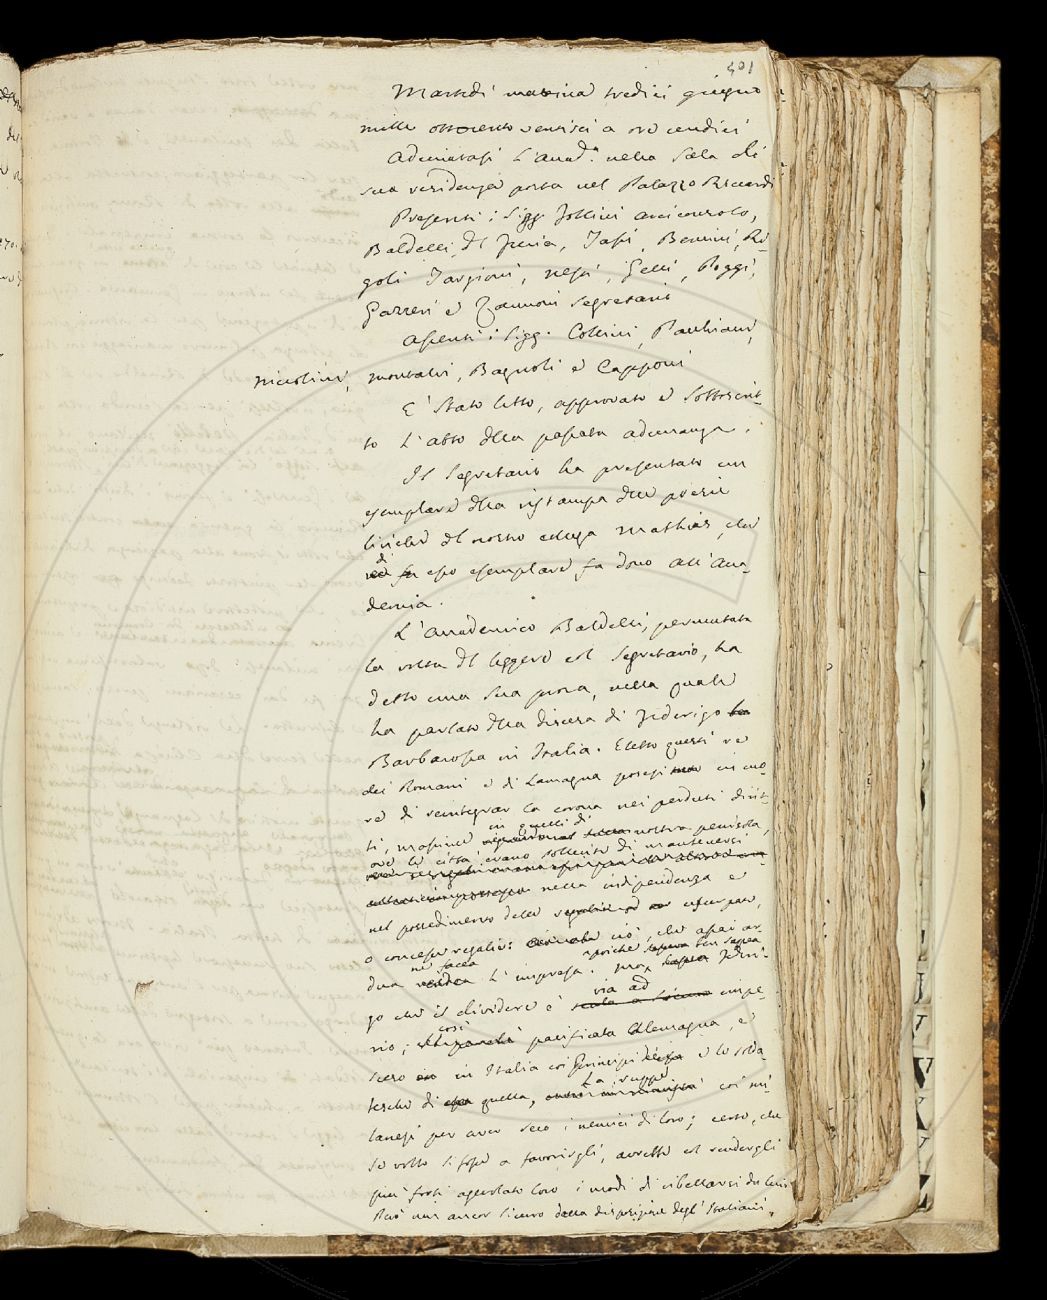 401
Martedì mattina tredici giugno
mille ottocento ventisei a ore undici
Adunatasi l'Accad.ª nella Sala di
sua residenza posta nel Palazzo Riccardi
Presenti i Sigg. Follini arciconsolo,
Baldelli, Del Furia, Tassi, Bencini, Ri-
goli, Targioni, Nesti, Gelli, Poggi,
Gazzeri e Zannoni Segretario
Assenti i Sigg. Collini, Pacchiani,
Niccolini, Montalvi, Bagnoli e Capponi
E' stato letto, approvato e sottoscrit-
to l'atto della passata adunanza.
Il Segretario ha presentato un
esemplare della ristampa delle poesie
liriche del nostro collega Mathias, che
di esso esemplare fa dono all'Acca-
demia.
L'Accademico Baldelli, permutata
la volta del leggere col Segretario, ha
detto una sua prosa, nella quale
ha parlato della discesa di Federigo
Barbarossa in Italia. Eletto questi re
dei Romani e di Lamagna posesi in cuo-
re di reintegrar la corona nei perduti dirit-
ti, massime in quelli di nostra penisola,
ove le città erano sollecite di mantenersi
nella indipendenza e
nel possedimento delle usurpate,
o concesse regalie: ciò, che assai ar-
dua ne facea l'impresa. poiche ben sapea Federi-
go che il dividere è via ad impe-
rio; così pacificata Alemagna, e
sceso in Italia coi Principi e lo solda-
tesche di quella, la ruppe coi mi-
lanesi per aver seco i nemici di loro; certo, che
se volto si fosse a favorirgli, avrebbe col rendergli
più forti agevolato loro i modi di ribellarsi da lui.
Reso così ancor sicuro della disposizione degl'Italiani,